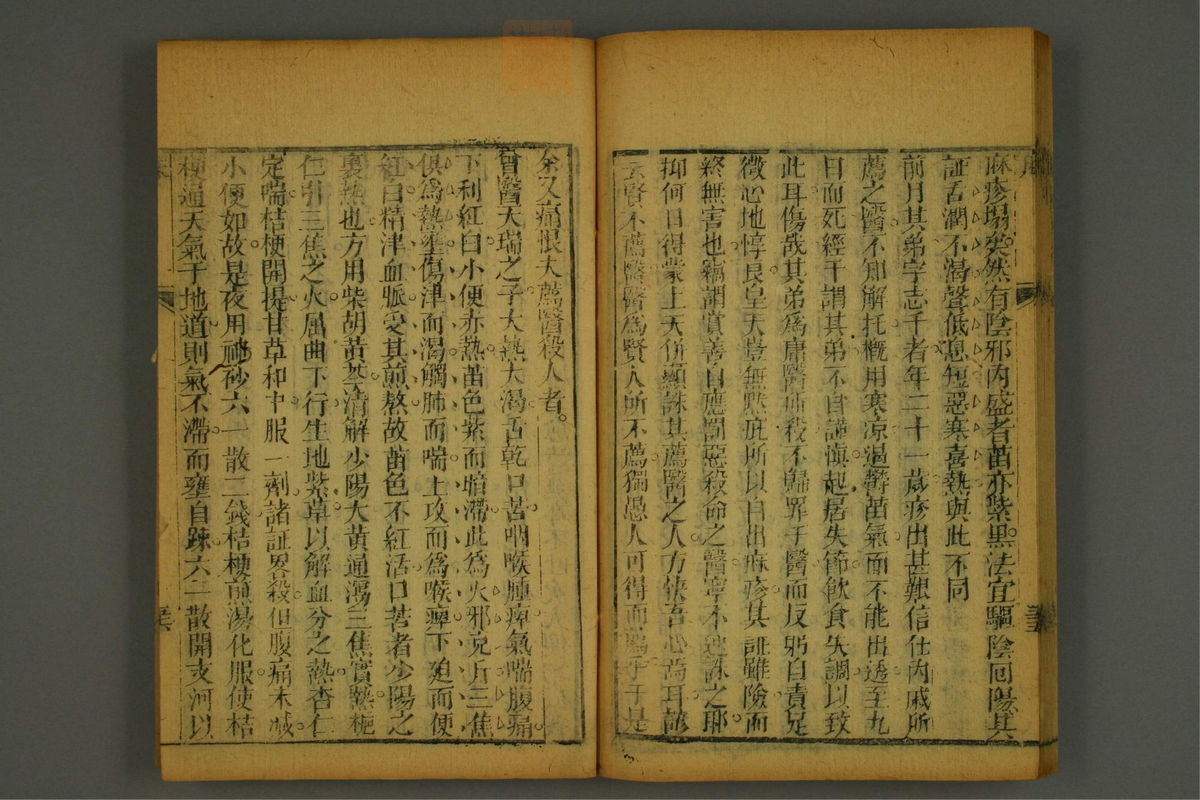 麻疹塌突然有陰邪内盛者苗亦紫黑法宜驅陰回陽其
証舌潤不渴聲低息短惡寒喜熱與此不同
前月其弟字志千者年二十一歲疹出甚艱信仕内戚所
薦之醫不知解托概用寒凉遏欝苗氣而不能出透至九
日而死經千謂其弟不自謹慎起居失節飲食失調以致
此耳傷哉其弟為庸醫所殺不歸罪于醫而反躬自責足
徵心地惇良皇天豈無默庇所以自出麻疹其証雖險而
終無害也竊謂賞善自應罰惡殺命之醫寧不速誅之耶
抑何日得蒙上天併顯誅其薦醫之人方快吾心焉耳諺
云賢不薦醫醫為賢人所不薦獨愚人可得而薦乎于是
余又痛恨夫薦醫殺人者
曾醫大瑞之子大熱大渴舌乾口苦咽喉腫痺氣喘腹痛
下利紅白小便亦熱苗色紫而暗滯此為火邪充斥三焦
俱為熱壅傷津而渴觸肺而喘上攻而為喉痺下廹而便
紅白精津血脈受其煎熬故苗色不紅活口苦者少陽之
裏熱也方用柴胡黄芩清解少陽大黄通瀉三焦實熱梔
仁引三焦之火屈曲下行生地紫草以解血分之熱杏仁
定喘桔梗開提甘草和中服一劑諸証畧殺但腹痛未減
小便如故是夜用砂六一散二錢桔梗煎湯化服使桔
梗通天氣于地道則氣不滯而壅自踈六一散開支河以